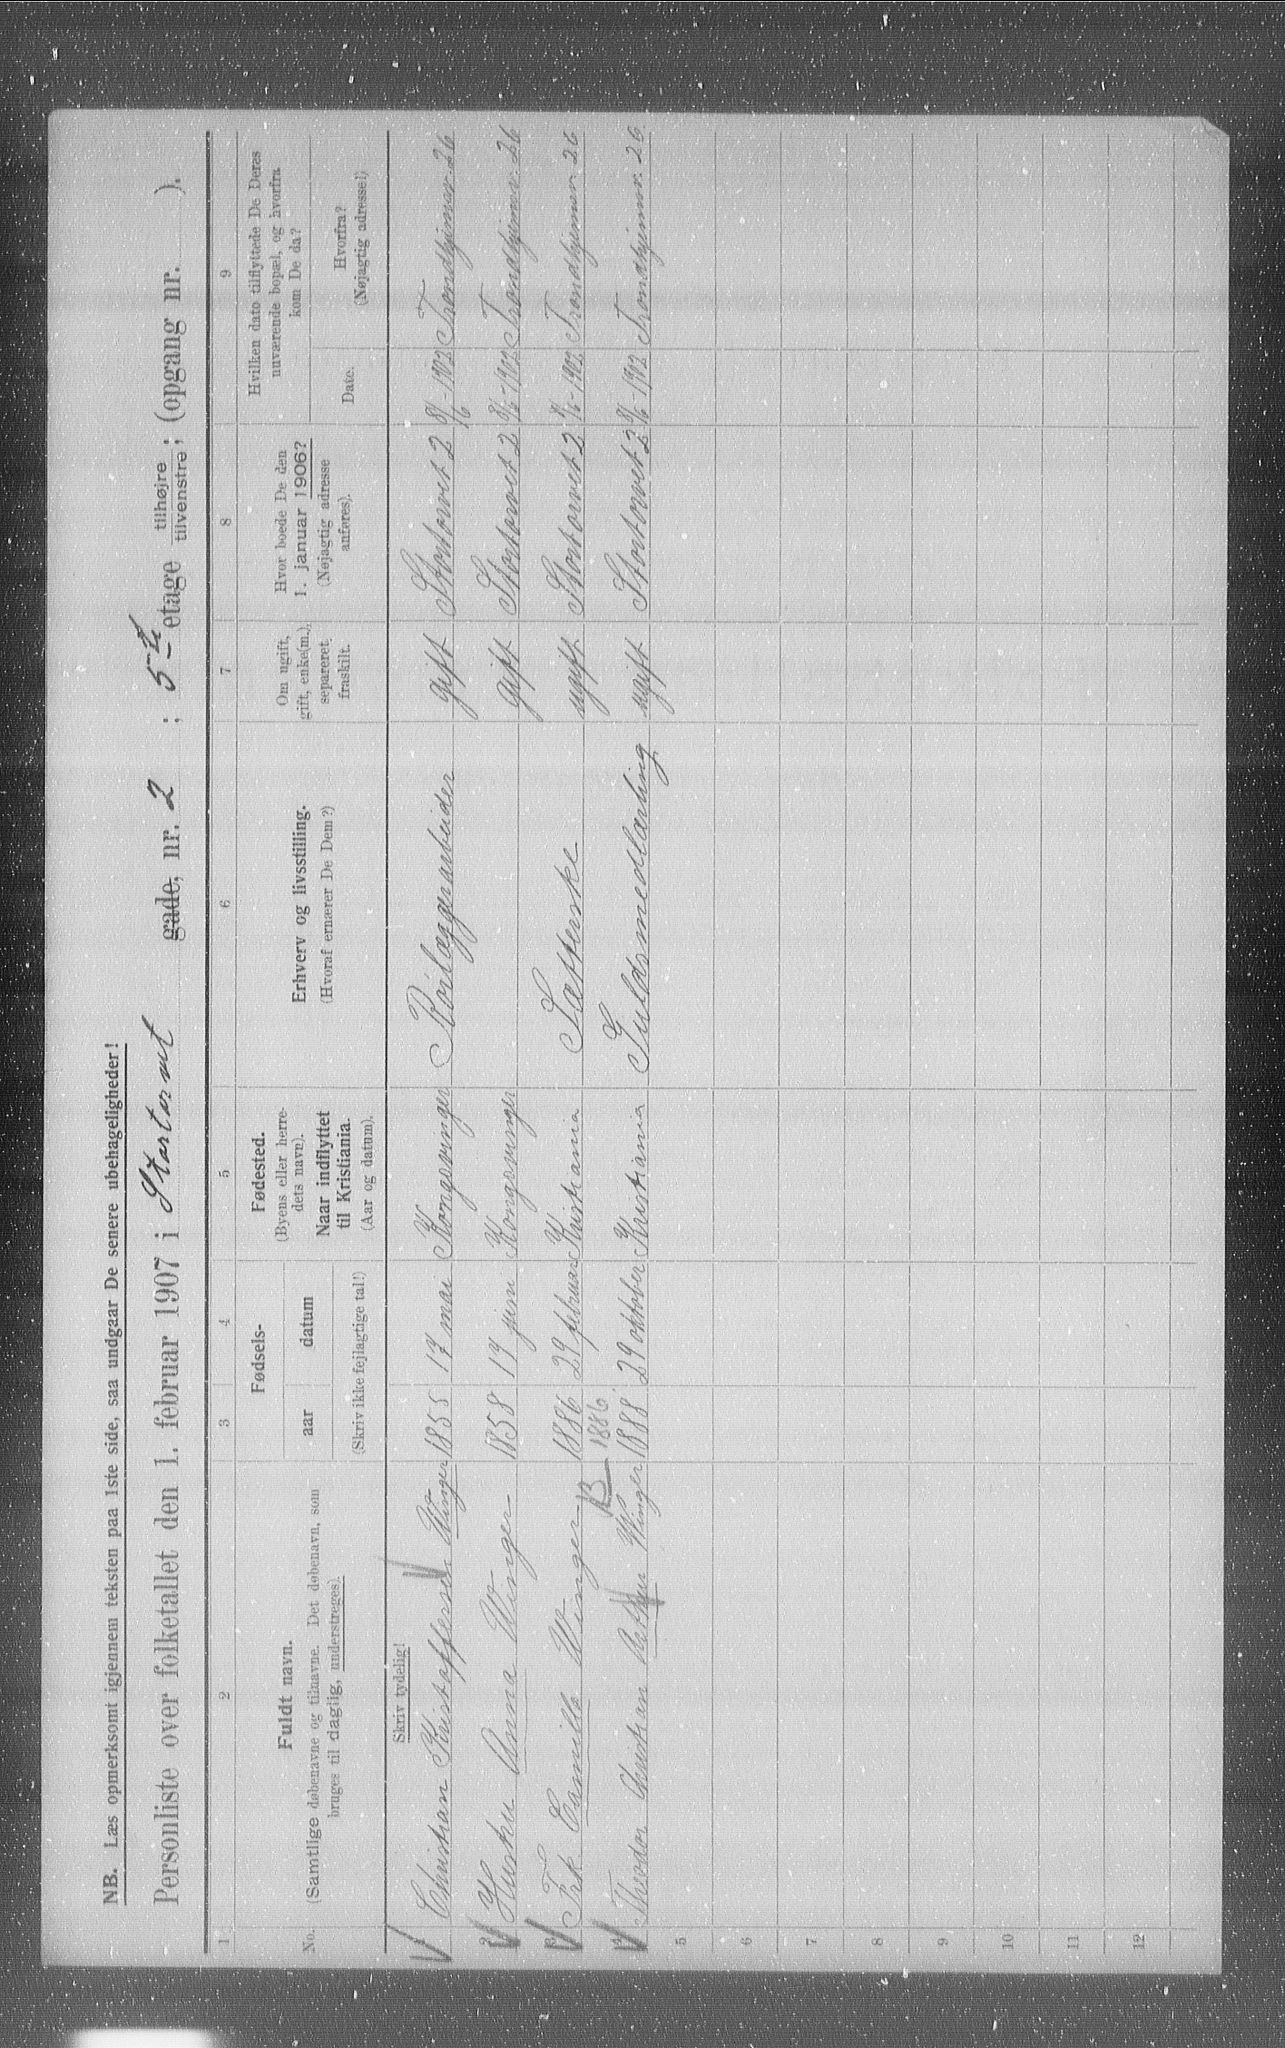 NB. Læs opmerksomt igjennem teksten paa 1ste side, saa undgaar De senere ubehageligheder!
Personliste over folketallet den 1. februar 1907 i Stortorvet gade, nr. 2 ; 5te etage tilhøjre tilvenstre; (opgang nr. ).
1 2 3 4 5 6 7 8 9
No.
Fuldt navn.
(Samtlige døbenavne og tilnavne. Det døbenavn, som
bruges til daglig, understreges).
Skriv tydelig!
Fødsels-
aar datum
(Skriv ikke fejlagtige tal!)
Fødested.
(Byens eller herre-
dets navn).
Naar indflyttet
til Kristiania.
(Aar og datum).
Erhverv og livsstilling.
(Hvoraf ernærer De Dem?)
Om ugift,
gift, enke(m.),
separeret,
fraskilt.
Hvor boede De den
1. januar 1906?
(Nøjagtig adresse
anføres).
Hvilken dato tilflyttede De Deres
nuværende bopæl, og hvorfra
kom De da?
Dato.
Hvorfra?
(Nøjagtig adresse!)
1 Christian Kristoffersen Winger 1855 17 mai Kongsvinger Rörlæggerarbeider gift Stortorvet 2 8/6-1902 Trondhjemsv. 26
2 Hustru Anna Winger 1858 17 juni Kongsvinger gift Stortorvet 2 8/6-1902 Trondhjemsv. 26
3 Frk Camilla Winger 1886 29 februar Kristiania Sætterske ugift Stortorvet 2 8/6-1902 Trondhjemsv. 26
B 1886
4 Theodor Christian Arthur Winger 1888 29 oktober Kristiania Guldsmedlærling ugift Stortorvet 2 8/6-1902 Trondhjemsv. 26
5
6
7
8
9
10
11
12